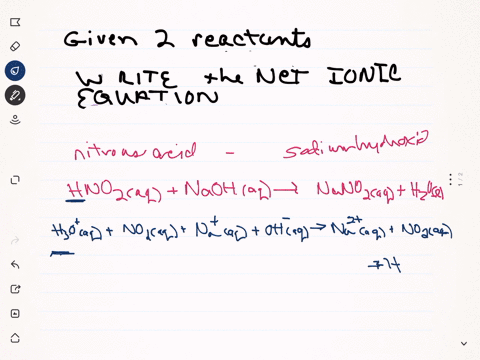 Given 2 reactants
WRITE the Net IONIC
EQUATION
nitrous acid - sodium hydroxid
HNO2(aq) + NaOH(aq) → NaNO2(aq) + H2O
H3O⁺(aq) + NO2(aq) + Na⁺(aq) + OH⁻(aq) → Na²⁺(aq) + NO2(aq)
+ H